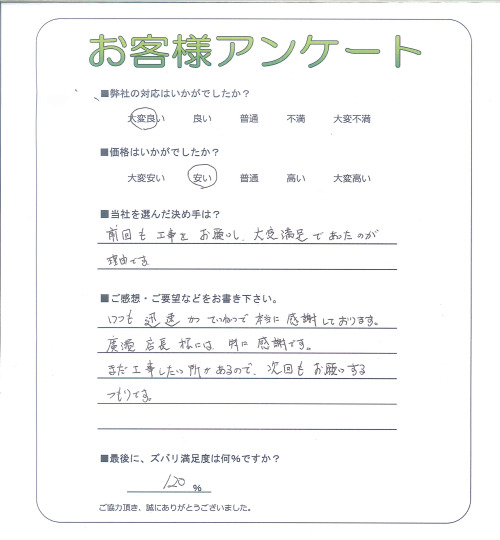 お客様アンケート
■弊社の対応はいかがでしたか?
大変良い 良い 普通 不満 大変不満
■価格はいかがでしたか?
大変安い 安い 普通 高い 大変高い
■当社を選んだ決め手は?
前回も工事をお願いし、大変満足であったのが
理由です。
■ご感想・ご要望などをお書き下さい。
いつも迅速かつていねいで本当に感謝しております。
廣瀬店長様には、特に感謝です。
まだ工事したい所があるので、次回もお願いする
つもりです。
■最後に、ズバリ満足度は何%ですか?
120 %
ご協力頂き、誠にありがとうございました。